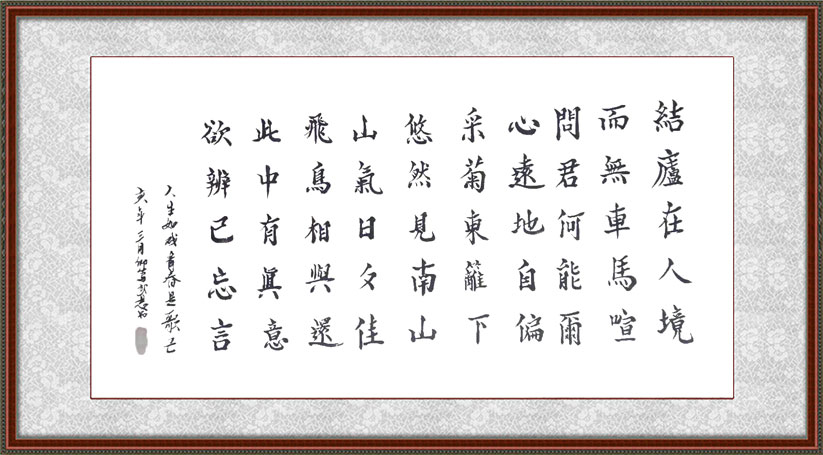 結廬在人境
而無車馬喧
問君何能爾
心遠地自偏
采菊東籬下
悠然見南山
山氣日夕佳
飛鳥相與還
此中有眞意
欲辨已忘言
人生如戏青春是歌己
亥年三月